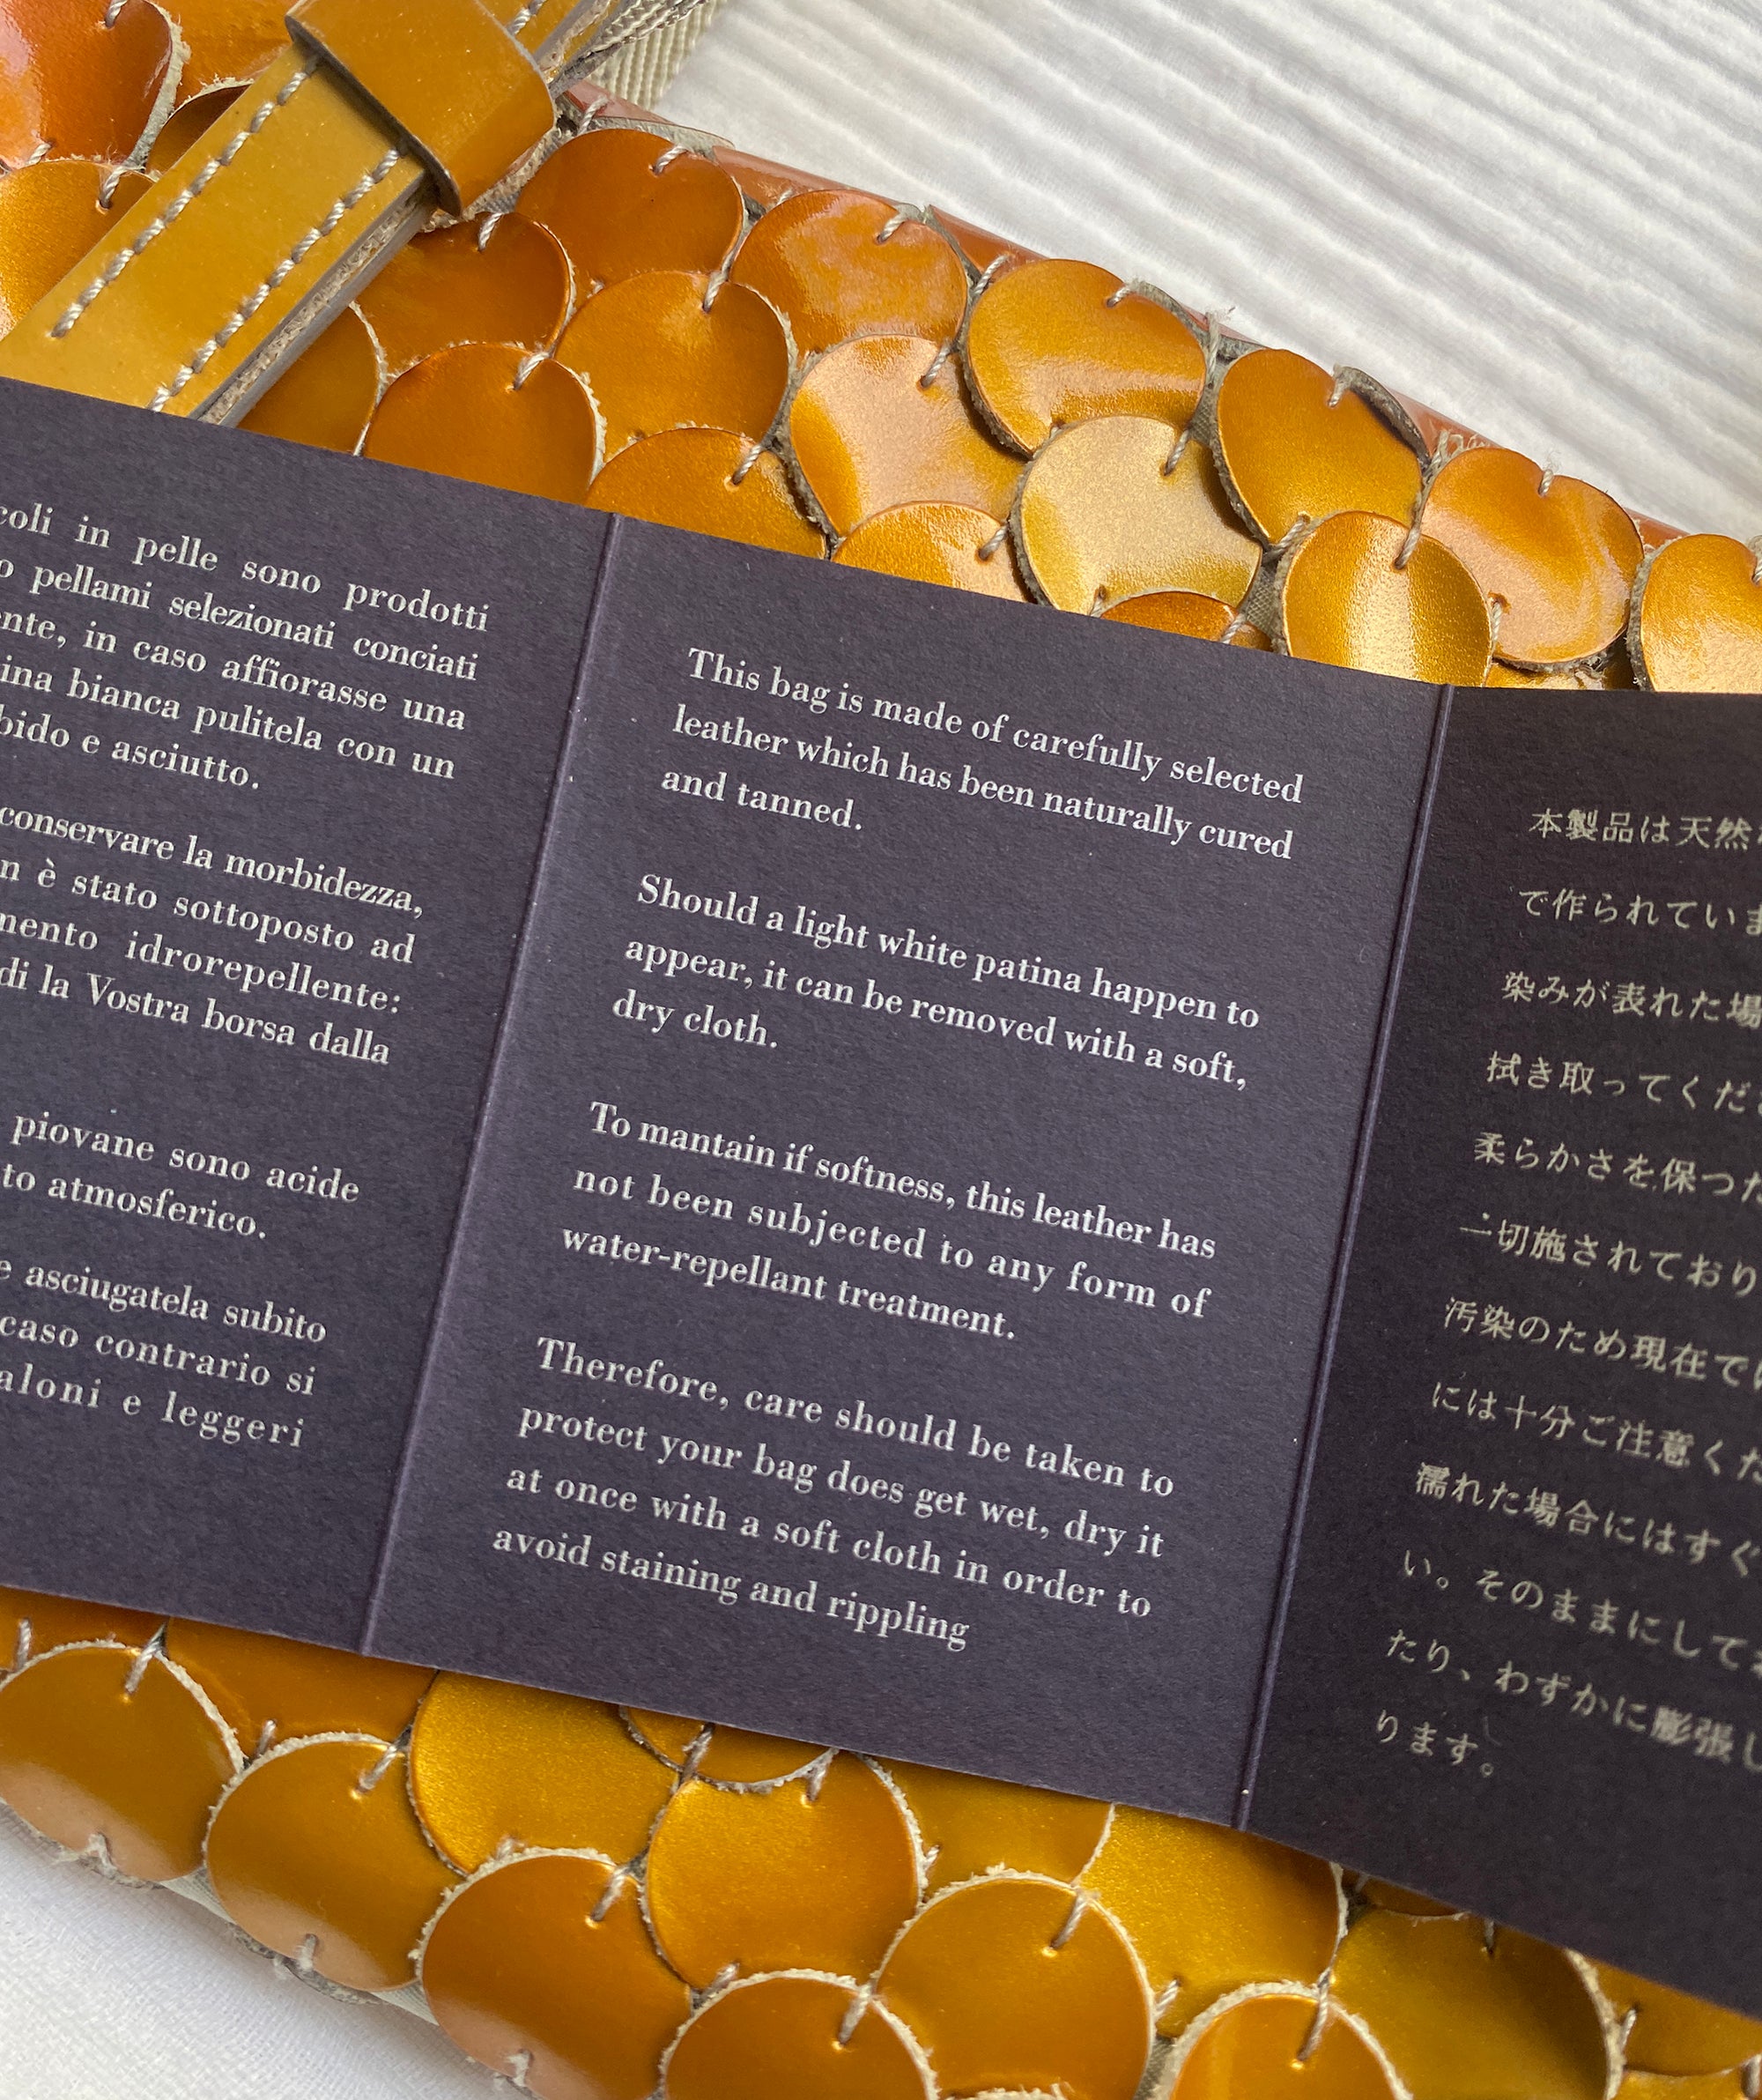 coli in pelle sono prodotti
o pellami selezionati conciati
nte, in caso affiorasse una
ina bianca pulitela con un
bido e asciutto.
conservare la morbidezza,
n è stato sottoposto ad
mento idrorepellente:
di la Vostra borsa dalla
piovane sono acide
to atmosferico.
e asciugatela subito
caso contrario si
aloni e leggeri
This bag is made of carefully selected
leather which has been naturally cured
and tanned.
Should a light white patina happen to
appear, it can be removed with a soft,
dry cloth.
To mantain if softness, this leather has
not been subjected to any form of
water-repellant treatment.
Therefore, care should be taken to
protect your bag does get wet, dry it
at once with a soft cloth in order to
avoid staining and rippling
本製品は天然
で作られていま
染みが表れた場
拭き取ってくだ
柔らかさを保つた
一切施されており
汚染のため現在では
には十分ご注意くだ
濡れた場合にはすぐ
い。そのままにして
たり、わずかに膨張し
ります。